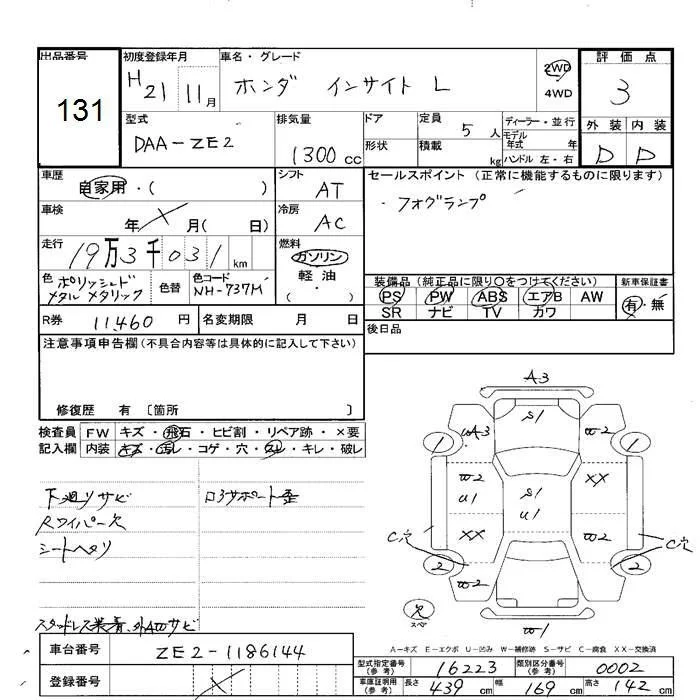 出品番号 初度登録年月 車名・グレード 評価点
131 H21 11月 ホンダ インサイト L 2WD 4WD 3
型式 排気量 ドア 定員 ディーラー・並行 外装 内装
DAA-ZE2 1300cc 5人 モデル年式 年 D D
形状 積載 kg ハンドル 左・右
車歴 シフト セールスポイント(正常に機能するものに限ります)
自家用・( ) AT ・フォグランプ
車検 年 月( 日) 冷房 AC
走行 19万3千031km 燃料 ガソリン 軽油 ( ・ )
色 ポリッシュドメタル メタリック 色替 色コード NH-737M
装備品(純正品に限り○をつけてください) 新車保証書
PS PW ABS エアB AW 有・無
SR ナビ TV カワ
R券 11,460円 名変期限 月 日 後日品
注意事項申告欄(不具合内容等は具体的に記入して下さい)
修復歴 有 〔箇所 〕
検査員 FW キズ・飛石・ヒビ割・リペア跡・×要
記入欄 内装 キズ・汚レ・コゲ・穴・スレ・キレ・破レ
A3
S1
A3 W2
1 1
W2 S1 XX
U1 U1
C穴 XX W2 C穴
2 W2 W2 2
欠 スペア
W1
下廻りサビ ロアサポート歪
Rワイパー欠
シートヘタリ
スタッドレス装着、外AWサビ
A-キズ E-エクボ U-凹み W-補修跡 S-サビ C-腐食 XX-交換済
車台番号 ZE2-1186144
登録番号
型式指定番号(参考) 16223 類別区分番号(参考) 0002
車庫証明用(参考) 長さ 439cm 幅 169cm 高さ 142cm